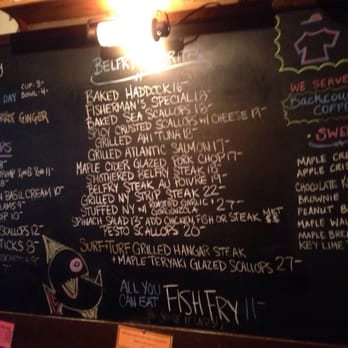 DAY
CUP-3-
BOWL-4-
GINGER
BASIL CREAM 10
SCALLOPS 12
TICKS 8-
BELFRY
BAKED HADDOCK 16-
FISHERMAN'S SPECIAL 18-
BAKED SEA SCALLOPS 18-
SPICY CRUSTED SCALLOPS W/CHEESE 19-
GRILLED AHI TUNA 18-
GRILLED ATLANTIC SALMON 17-
MAPLE CIDER GLAZED PORK CHOP 17-
SMOTHERED BELFRY STEAK 18-
BELFRY STEAK AU POIVRE 19-
GRILLED NY STRIP STEAK 22-
STUFFED NY W/ ROASTED GARLIC + GORGONZOLA 27-
SPINACH SALAD 13- ADD CHICKEN, FISH OR STEAK
PESTO SCALLOPS 20-
SURF+TURF GRILLED HANGAR STEAK
+ MAPLE TERYAKI GLAZED SCALLOPS 27-
ALL YOU
CAN EAT
FISH FRY 11-
WE SERVE
COFF
SWE
MAPLE CRE
APPLE CRIS
CHOCOLATE
BROWNIE
PEANUT B
MAPLE
MAPLE BRE
KEY LIME